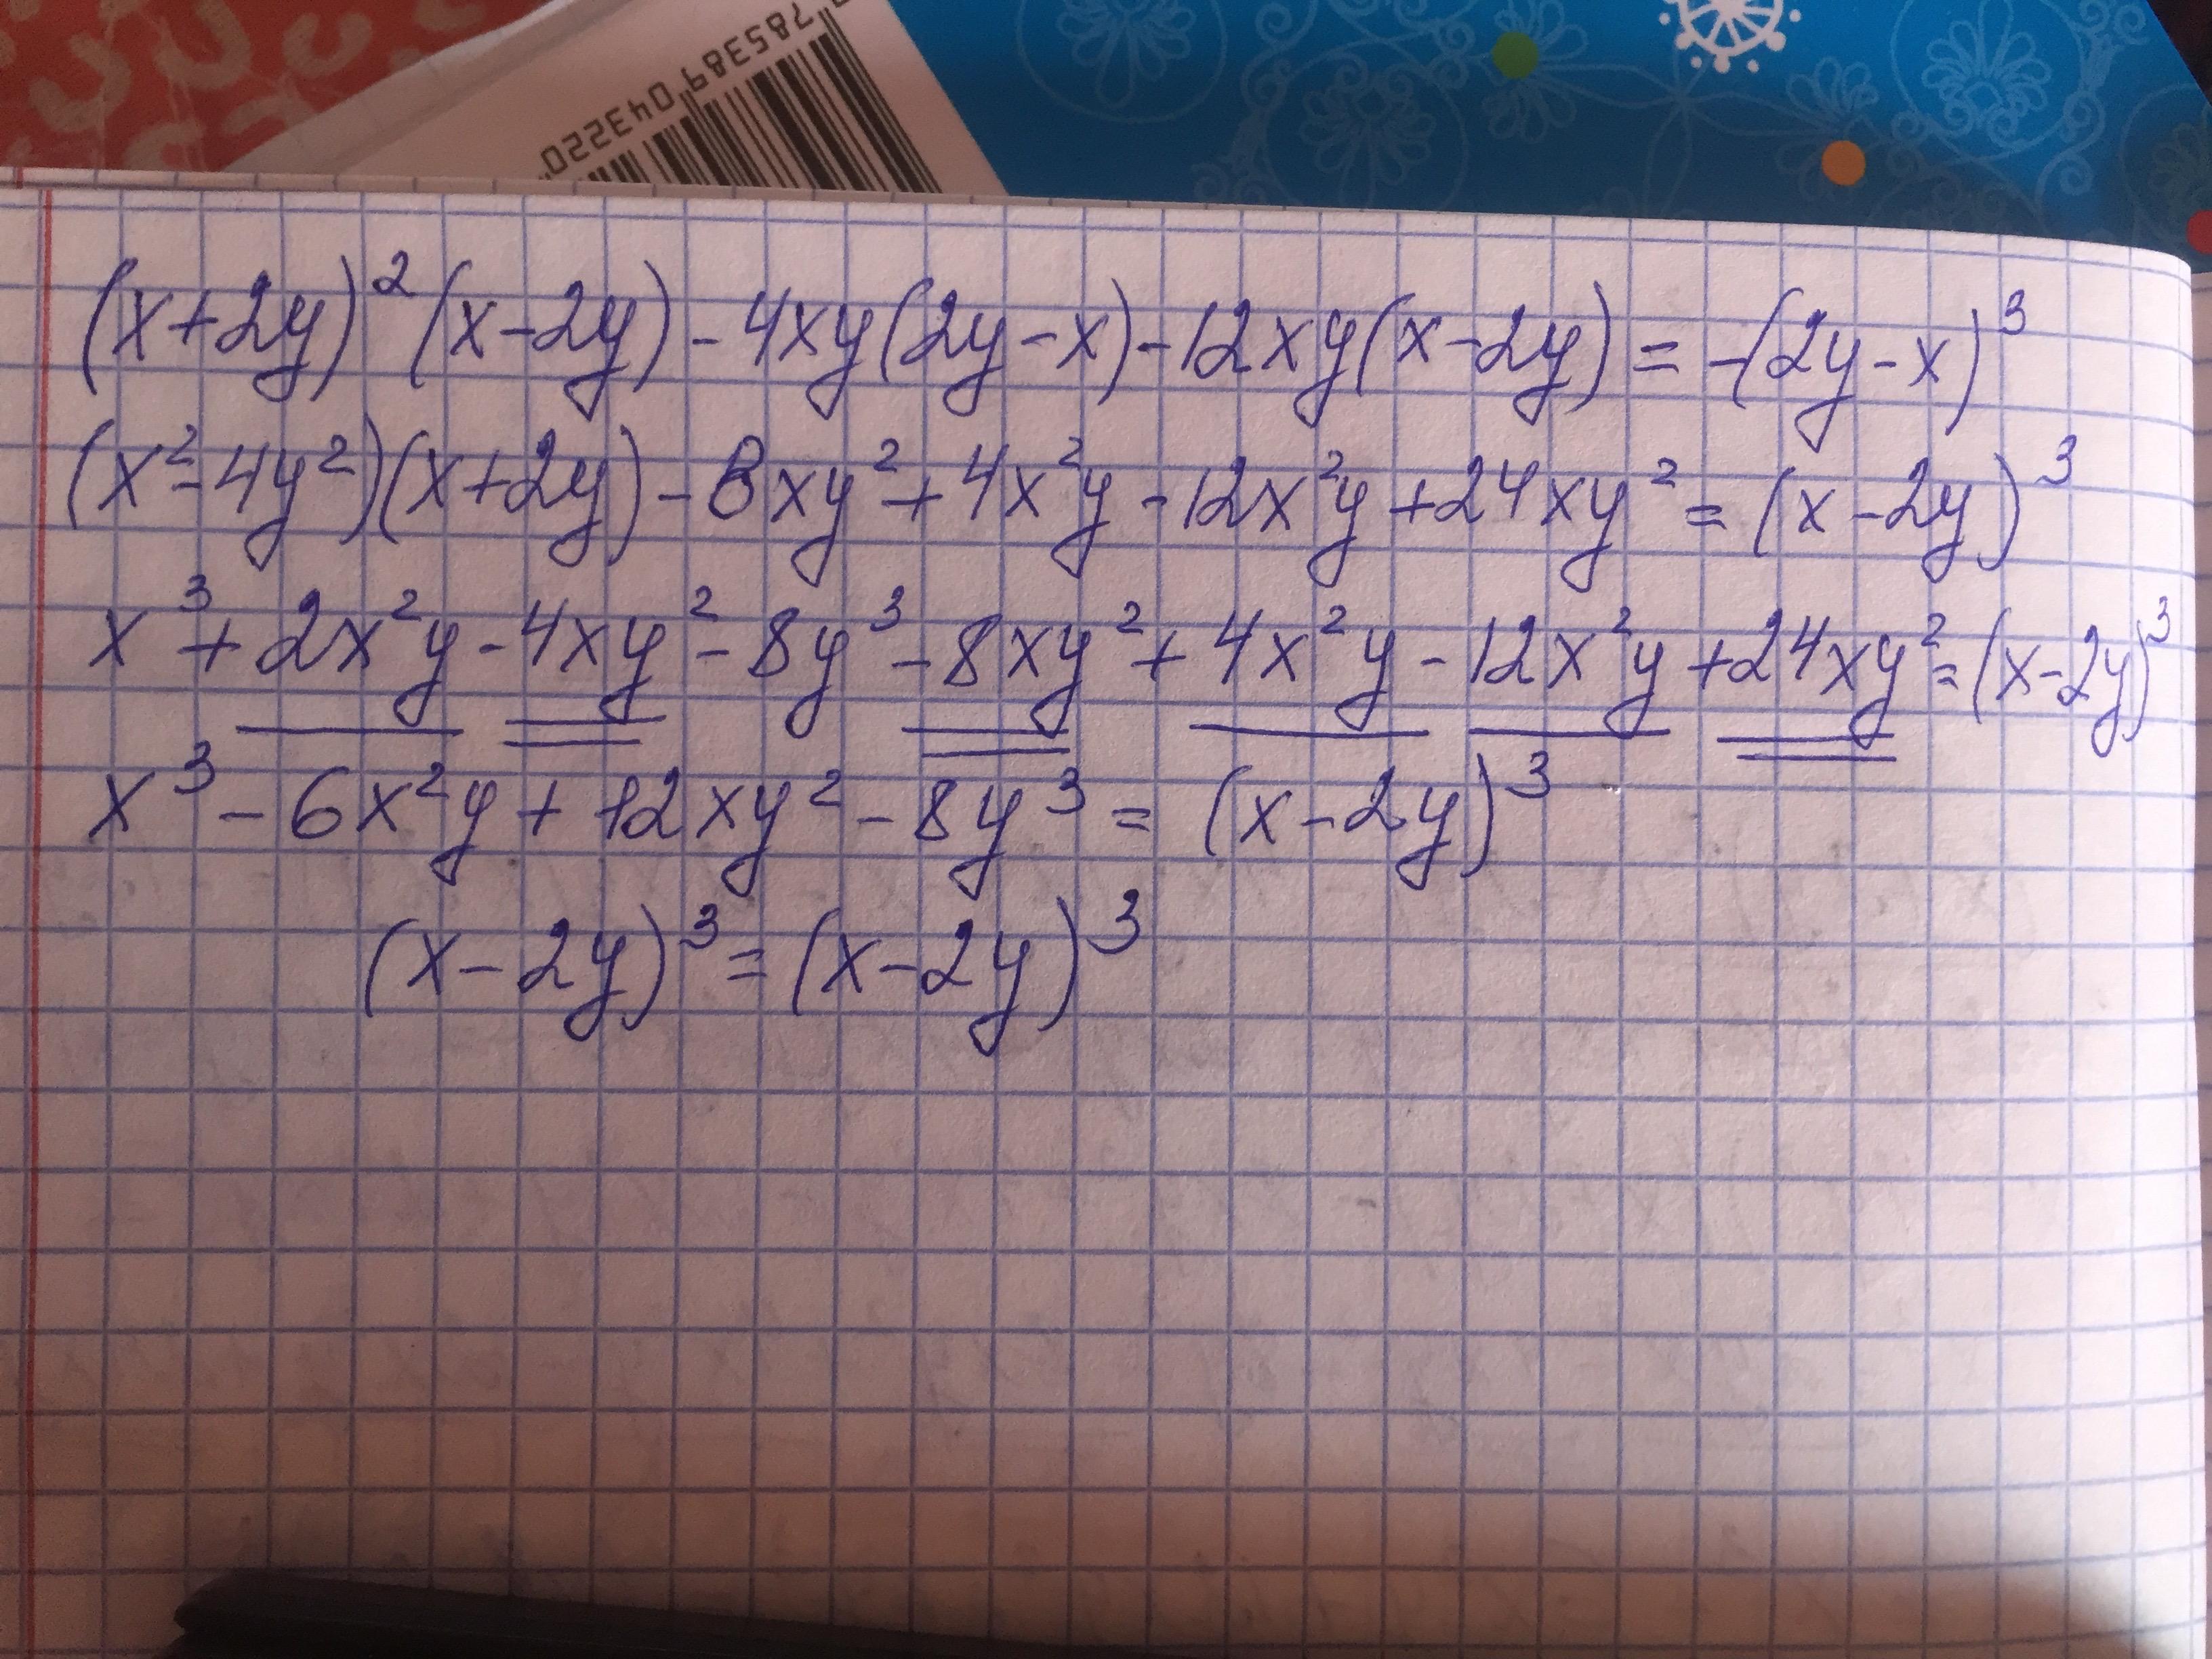 785389 043220
(x+2y)²(x-2y)-4xy(2y-x)-12xy(x-2y)=-(2y-x)³
(x²-4y²)(x+2y)-8xy²+4x²y-12x²y+24xy²=(x-2y)³
x³+2x²y-4xy²-8y³-8xy²+4x²y-12x²y+24xy²=(x-2y)³
x³-6x²y+12xy²-8y³=(x-2y)³
(x-2y)³=(x-2y)³